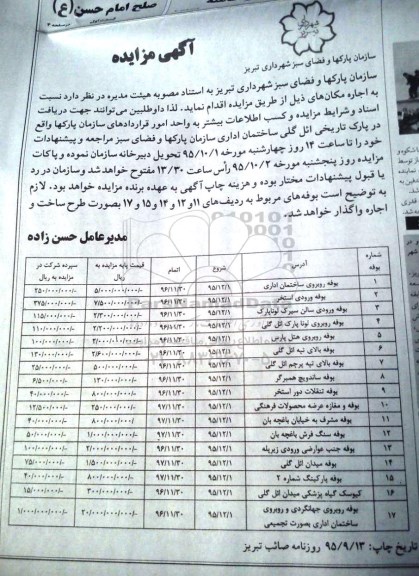 صلح امام حسن (ع)
آگهی مزایده
سازمان پارکها و فضای سبز شهرداری تبریز
سازمان پارکها و فضای سبز شهرداری تبریز به استناد مصوبه هیئت مدیره در نظر دارد نسبت
به اجاره مکان‌های ذیل از طریق مزایده اقدام نماید. لذا داوطلبین می‌توانند جهت دریافت
اسناد و شرایط مزایده و کسب اطلاعات بیشتر به واحد امور قراردادهای سازمان پارکها واقع
در پارک تاریخی ائل گلی ساختمان اداری سازمان پارکها و فضای سبز مراجعه و پیشنهادات
خود را تا ساعت ۱۴ روز چهارشنبه مورخه ۹۵/۱۰/۱ تحویل دبیرخانه سازمان نموده و پاکات
مزایده روز پنجشنبه مورخه ۹۵/۱۰/۲ رأس ساعت ۱۳/۳۰ مفتوح خواهد شد و سازمان در رد
یا قبول پیشنهادات مختار بوده و هزینه چاپ آگهی به عهده برنده مزایده خواهد بود. لازم
به توضیح است بوفه‌های مربوط به ردیف‌های ۱۱ و ۱۲ و ۱۴ و ۱۵ و ۱۷ بصورت طرح ساخت و
اجاره واگذار خواهد شد.
مدیرعامل حسن زاده
شماره بوفه آدرس شروع اتمام قیمت پایه مزایده به ریال سپرده شرکت در مزایده به ریال
۱ بوفه روبروی ساختمان اداری ۹۵/۱۲/۱ ۹۶/۱۱/۳۰ ۵/۰۰۰/۰۰۰/۰۰۰- ۲۵۰/۰۰۰/۰۰۰-
۲ بوفه ورودی استخر ۹۵/۱۲/۱ ۹۶/۱۱/۳۰ ۷/۵۰۰/۰۰۰/۰۰۰- ۳۷۵/۰۰۰/۰۰۰-
۳ بوفه ورودی سالن سیرک لوناپارک ۹۵/۱۲/۱ ۹۶/۱۱/۳۰ ۲/۳۰۰/۰۰۰/۰۰۰- ۱۱۵/۰۰۰/۰۰۰-
۴ بوفه روبروی لونا پارک ائل گلی ۹۵/۱۲/۱ ۹۶/۱۱/۳۰ ۲/۲۰۰/۰۰۰/۰۰۰- ۱۱۰/۰۰۰/۰۰۰-
۵ بوفه روبروی هتل پارس ۹۵/۱۲/۱ ۹۶/۱۱/۳۰ ۲/۰۰۰/۰۰۰/۰۰۰- ۱۰۰/۰۰۰/۰۰۰-
۶ بوفه بالای تپه ائل گلی ۹۵/۱۲/۱ ۹۶/۱۱/۳۰ ۲/۶۰۰/۰۰۰/۰۰۰- ۱۳۰/۰۰۰/۰۰۰-
۷ بوفه بالای تپه پرچم ائل گلی ۹۵/۱۲/۱ ۹۶/۱۱/۳۰ ۵۰۰/۰۰۰/۰۰۰- ۲۵/۰۰۰/۰۰۰-
۸ بوفه ساندویچ همبرگر ۹۵/۱۲/۱ ۹۶/۱۱/۳۰ ۱۳۰/۰۰۰/۰۰۰- ۶/۵۰۰/۰۰۰-
۹ بوفه تنقلات دور استخر ۹۵/۱۲/۱ ۹۶/۱۱/۳۰ ۸۰۰/۰۰۰/۰۰۰- ۴۰/۰۰۰/۰۰۰-
۱۰ بوفه و مغازه عرضه محصولات فرهنگی ۹۵/۱۲/۱ ۹۷/۱۱/۳۰ ۲۵۰/۰۰۰/۰۰۰- ۱۲/۵۰۰/۰۰۰-
۱۱ بوفه مشرف به خیابان باغچه بان ۹۵/۱۲/۱ ۹۷/۱۱/۳۰ ۸۰۰/۰۰۰/۰۰۰- ۴۰/۰۰۰/۰۰۰-
۱۲ بوفه سنگ فرش باغچه بان ۹۵/۱۲/۱ ۹۷/۱۱/۳۰ ۱/۰۰۰/۰۰۰/۰۰۰- ۵۰/۰۰۰/۰۰۰-
۱۳ بوفه جنب عوارضی ورودی زیرپله ۹۵/۱۲/۱ ۹۶/۱۱/۳۰ ۲/۰۰۰/۰۰۰/۰۰۰- ۱۰۰/۰۰۰/۰۰۰-
۱۴ بوفه میدان ائل گلی ۹۵/۱۲/۱ ۹۷/۱۱/۳۰ ۱/۵۰۰/۰۰۰/۰۰۰- ۷۵/۰۰۰/۰۰۰-
۱۵ بوفه پارکینگ شماره ۲ ۹۵/۱۲/۱ ۹۷/۱۱/۳۰ ۸۰۰/۰۰۰/۰۰۰- ۴۰/۰۰۰/۰۰۰-
۱۶ کیوسک گیاه پزشکی میدان ائل گلی ۹۵/۱۲/۱ ۹۶/۱۱/۳۰ ۳۰۰/۰۰۰/۰۰۰- ۱۵/۰۰۰/۰۰۰-
۱۷ بوفه روبروی جهانگردی و روبروی ساختمان اداری بصورت تجمیعی ۹۵/۱۲/۱ ۹۶/۱۱/۳۰ ۲۰/۰۰۰/۰۰۰/۰۰۰- ۱/۰۰۰/۰۰۰/۰۰۰-
تاریخ چاپ: ۹۵/۹/۱۳ روزنامه صائب تبریز